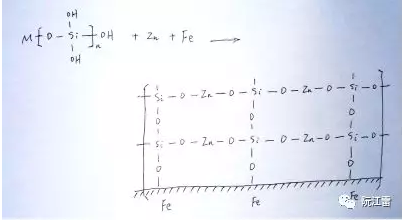 OH
M[O-Si-]nOH + Zn + Fe →
OH
-Si-O-Zn-O-Si-O-Zn-O-Si-O
O O O
-Si-O-Zn-O-Si-O-Zn-O-Si-O
O O O
Fe Fe Fe
阮江雷